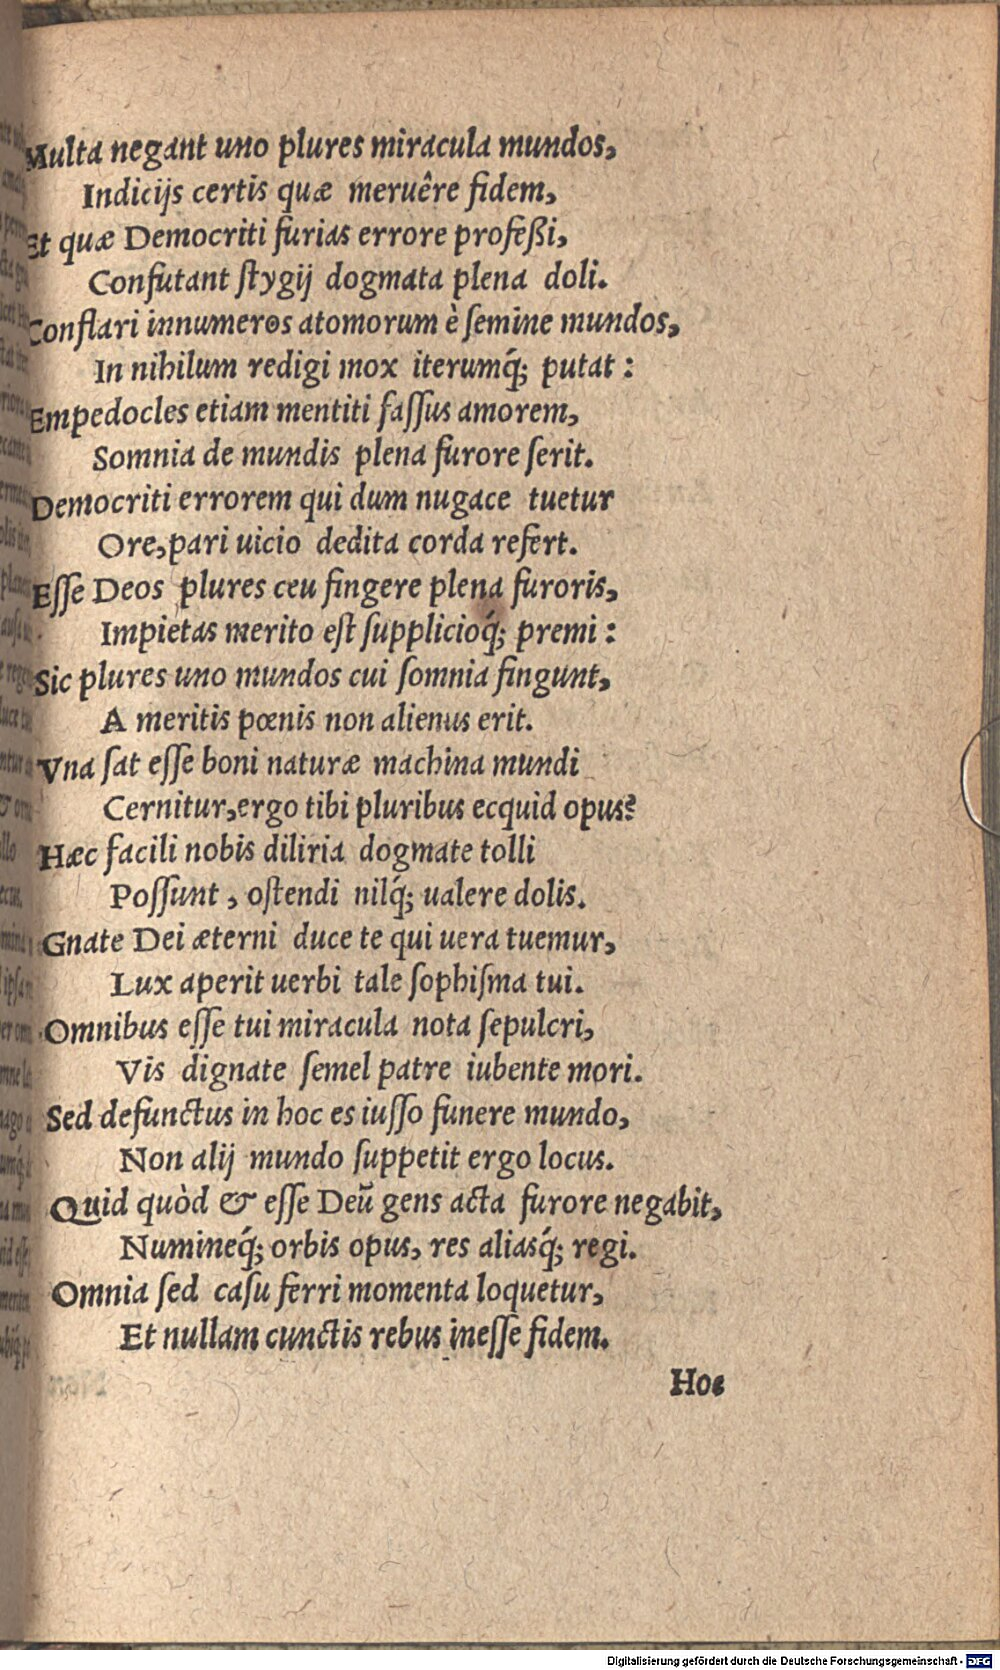 Multa negant uno plures miracula mundos,
Indicijs certis quæ meruêre fidem,
Et quæ Democriti furias errore profeßi,
Confutant ſtygij dogmata plena doli.
Conflari innumeros atomorum è ſemine mundos,
In nihilum redigi mox iterumq́; putat :
Empedocles etiam mentiti faſſus amorem,
Somnia de mundis plena furore ſerit.
Democriti errorem qui dum nugace tuetur
Ore, pari uicio dedita corda refert.
Eſſe Deos plures ceu fingere plena furoris,
Impietas merito eſt ſupplicioq́; premi :
Sic plures uno mundos cui ſomnia fingunt,
A meritis pœnis non alienus erit.
Vna ſat eſſe boni naturæ machina mundi
Cernitur, ergo tibi pluribus ecquid opus?
Hæc facili nobis diliria dogmate tolli
Poſſunt , oſtendi nilq́; ualere dolis.
Gnate Dei æterni duce te qui uera tuemur,
Lux aperit uerbi tale ſophiſma tui.
Omnibus eſſe tui miracula nota ſepulcri,
Vis dignate ſemel patre iubente mori.
Sed defunctus in hoc es iuſſo funere mundo,
Non alij mundo ſuppetit ergo locus.
Quid quòd & eſſe Deũ gens acta furore negabit,
Numineq́; orbis opus, res aliasq́; regi.
Omnia ſed caſu ferri momenta loquetur,
Et nullam cunctis rebus ineſſe fidem.
Hoc
Digitalisierung gefördert durch die Deutsche Forschungsgemeinschaft - DFG